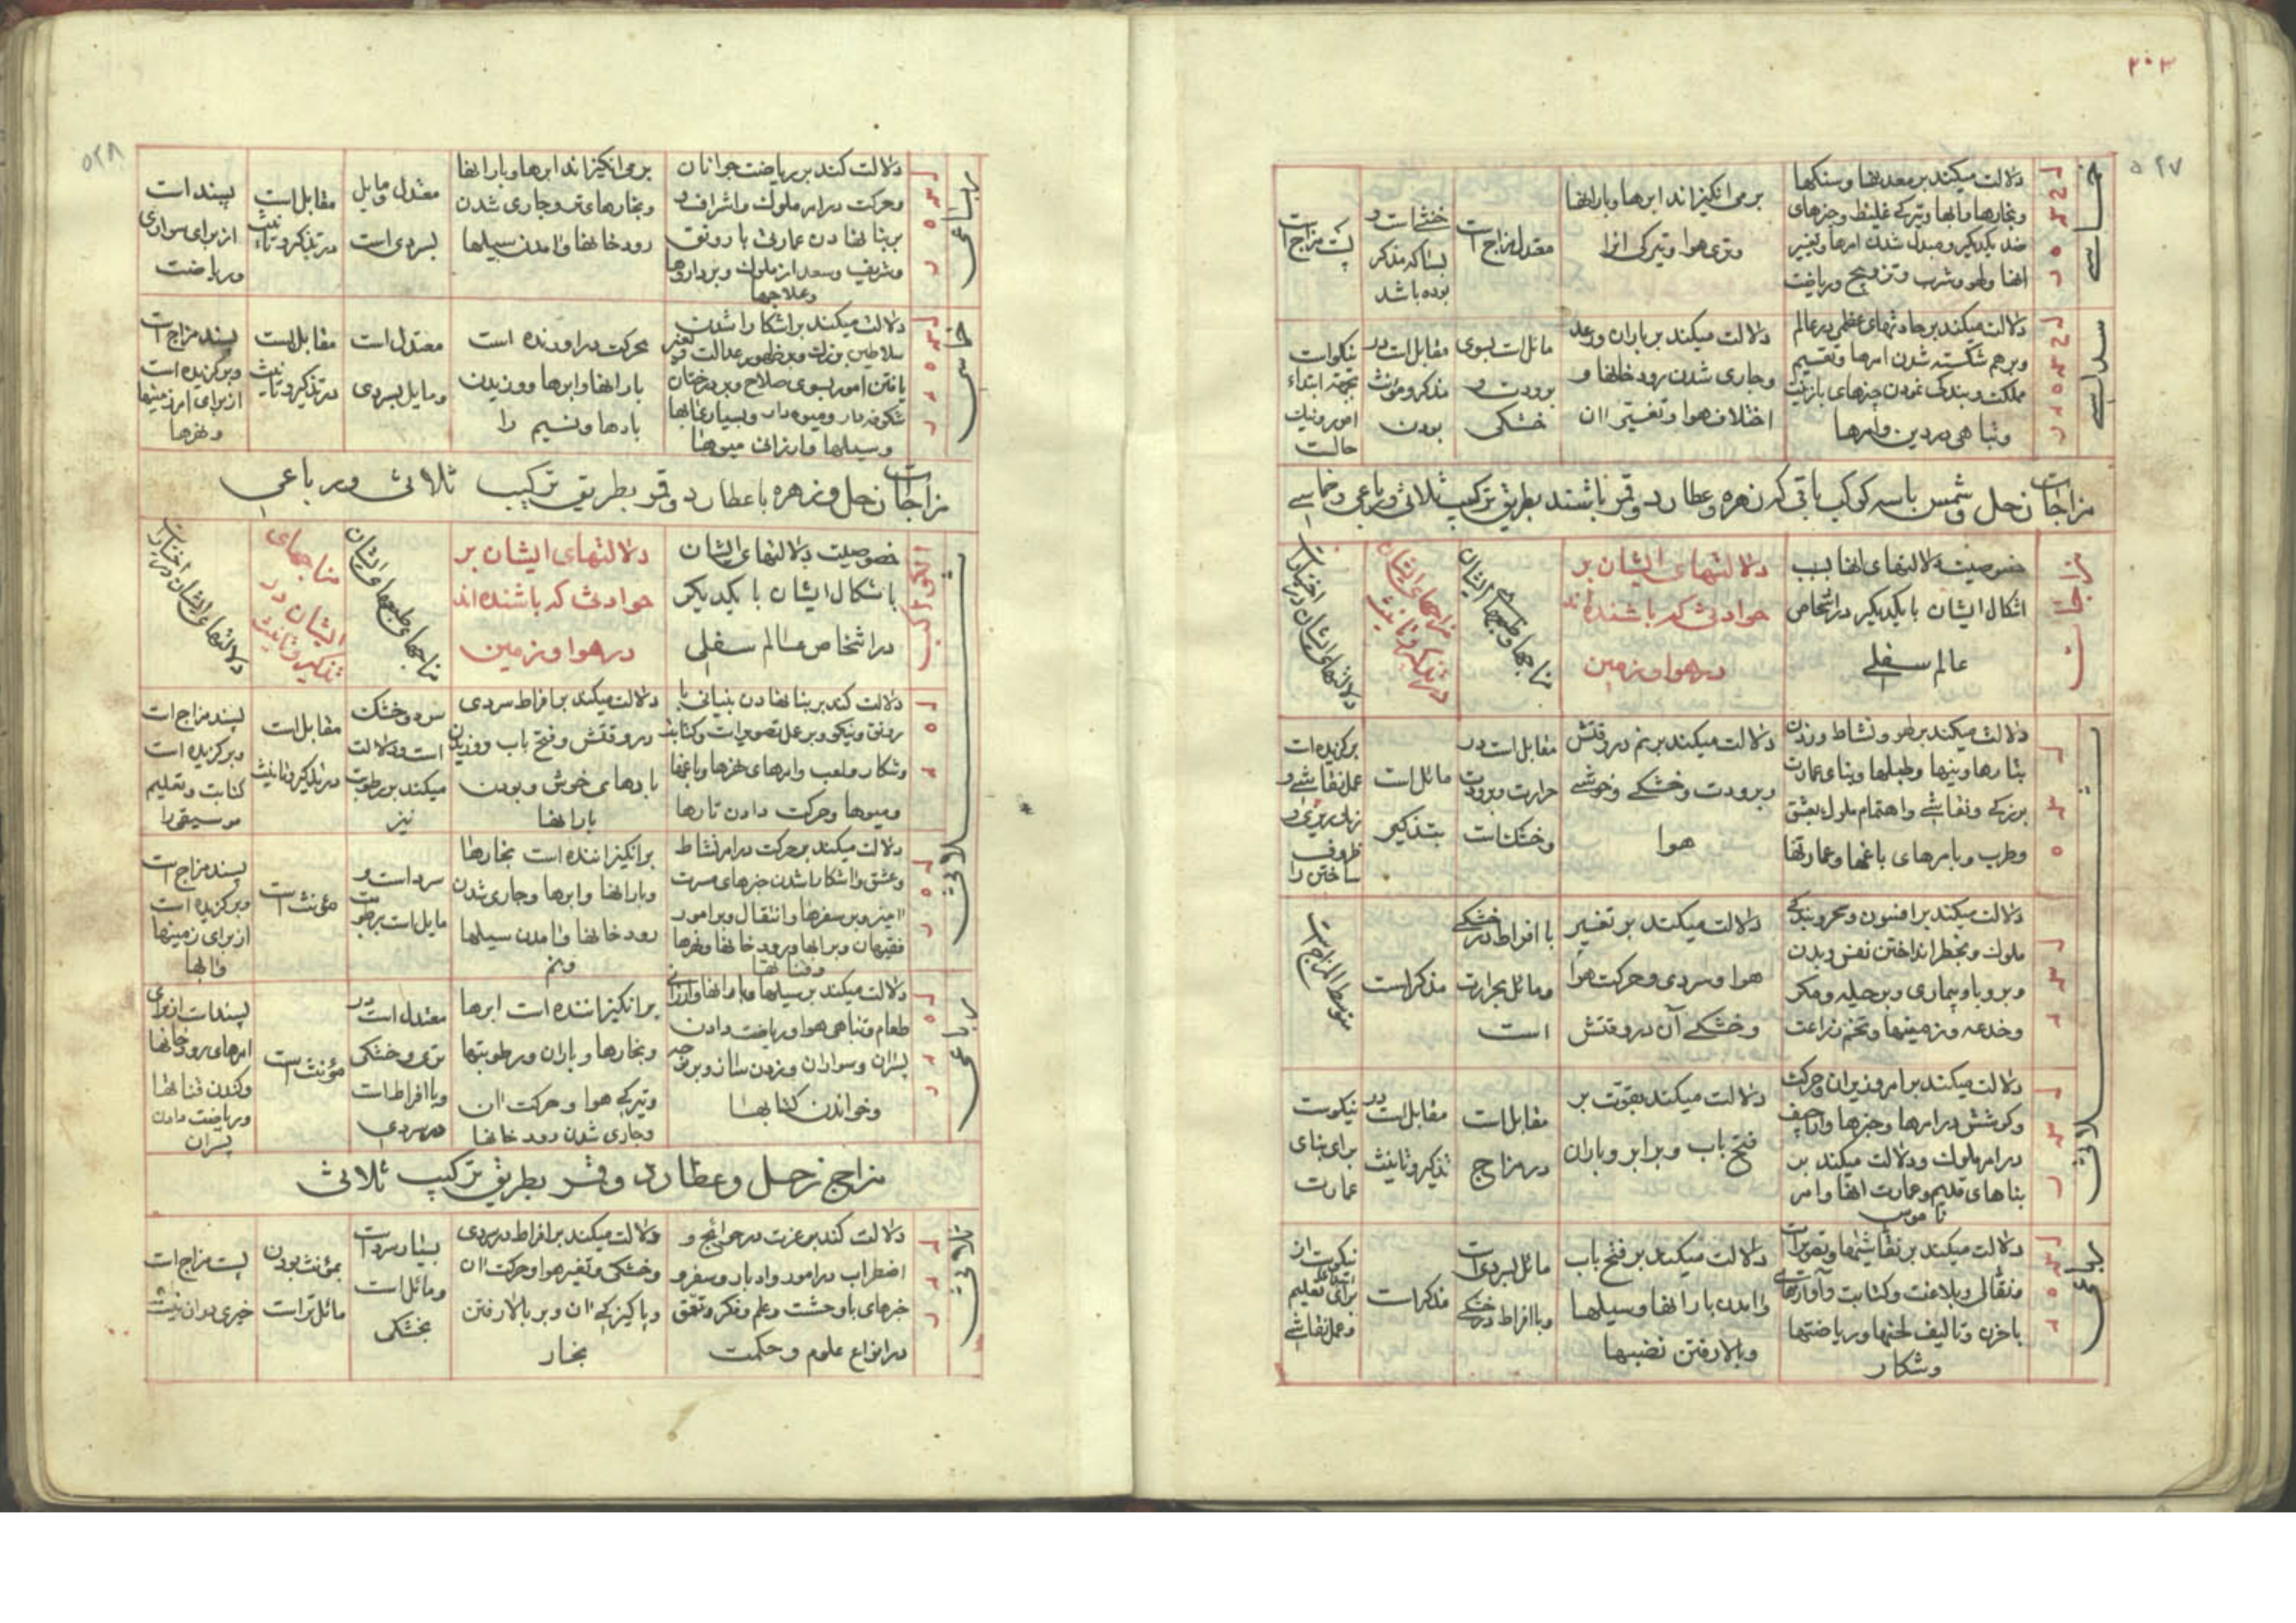 ٢٠٣
٥٢٧
خماسی
دلالت میکند بر معدنها و سنکها
وبخارها وابها وتیرکی غلیظ وچیزهای
ضد یکدیکر ومبدل شدن امرها وتغییر
انها ولهو وشرب وتزویج وریاضت
بر می انکیزاند ابرها وبارانها
وتری هوا وتیرکی انرا
معتدل مزاج است
خنثاست و
بساکه مذکر
بوده باشد
پست مزاج است
سداسی
دلالت میکند بر حادثهای عظمی در عالم
وبرهم شکسته شدن امرها وتقسیم
مملکت وبندکی نمودن چیزهای بازینت
وتباهی در دین وامرها
دلالت میکند بر باران ورعد
وجاری شدن رودخانها و
اختلاف هوا وتغییر ان
مائل است بسوی
برودت و
خشکی
مقابل است در
مذکر ومؤنث
بودن
نیکواست
بجهة ابتداء
امور ونیک
حالت
مزاجات زحل وشمس باسه کوکب باقی که زهره وعطارد وقمر باشند بطریق ترکیب ثلاثی ورباعی وخماسی
مزاجات
خصوصیت دلالتهای انها بسبب
اشکال ایشان با یکدیکر در اشخاص
عالم سفلی
دلالتهای ایشان بر
حوادثی که باشنده اند
در هوا وزمین
مزاجها وطبعهای ایشان
مزاجهای ایشان
در تذکیر وتانیث
دلالتهای ایشان در اختیارات
ثلاثی
دلالت میکند بر لهو ونشاط وزدن
بتارها وبینها وطبلها وبنای عمارت
بزرکی ونقاشی واهتمام ملوک بعشق
وطرب وبامرهای باغها وعمارتها
دلالت میکند بر نم در وقتش
وبرودت وخشکی وخوشی
هوا
مقابل است در
حرارت وبرودت
وخشکست
مائل است
بتذکیر
برکزیده است
عمل نقاشی و
ظروف
ساختن را
دلالت میکند بر افسون وسحر وبندکی
ملوک وبخطر انداختن نفس وبدن
وبر وبا وبیماری وبر حیله ومکر
وخدعه وزمینها وتخم زراعت
دلالت میکند بر تغییر
هوا وسردی وحرکت هوا
وخشکی آن در وقتش
با افراط در خشکی
ومائل بحرارت
است
مذکر است
متوسط المزاج است
دلالت میکند بر امر وزیران وحرکت
وکوشش در امرها وچیزها
در امر ملوک ودلالت میکند بر
بناهای قدیم وعمارت انها وامر
ناموس
دلالت میکند بقوت بر
فتح باب وبر ابر وباران
مقابل است
در مزاج
مقابل است در
تذکیر وتانیث
نیکوست
برای بنای
عمارت
رباعی
دلالت میکند بر نقاشیها وتصویرات
ونقالی وبلاغت وکتابت وآوازهای
باحزن وتالیف لحنها وریاضتها
وشکار
دلالت میکند بر فتح باب
وامدن بارانها وسیلها
وبالا رفتن نضبها
مائل بسردی است
وباافراط در خشکی
مذکر است
نیکوست از
برای تعلیم
وعمل نقاشی
٥٢٨
رباعی
دلالت کند بر ریاضت جوانان
وحرکت در امر ملوک واشراف و
بر بنا نهادن عمارتی با رونق
وشریف وسعد از ملوک وبر داروها
وعلاجها
بر می انکیزاند ابرها وبارانها
وبخارهای تر وجاری شدن
رودخانها وامدن سیلها
معتدل ومایل
بسردی است
مقابل است
در تذکیر وتانیث
پسند است
از برای سواری
وریاضت
خماسی
دلالت میکند بر اشکارا شدن
سلاطین بزرک وبر ظهور عدالت وتغییر
یافتن امور بسوی صلاح وبر درختان
شکوفه دار ومیوه دار وبسیار شدن ابها
وسیلها وارزانی میوها
بحرکت در اورنده است
بارانها وابرها ووزیدن
بادها ونسیم را
معتدل است
ومایل بسردی
مقابل است
در تذکیر وتانیث
پسند مزاج است
وبرکزیده است
از برای امر زمینها
ونهرها
مزاجات زحل وزهره با عطارد وقمر بطریق ترکیب ثلاثی ورباعی
خصوصیت دلالتهای ایشان
باشکال ایشان با یکدیکر
در اشخاص عالم سفلی
دلالتهای ایشان بر
حوادثی که باشنده اند
در هوا وزمین
مزاجهای طبعهای ایشان
مزاجهای
ایشان در
تذکیر وتانیث
دلالتهای ایشان در اختیارات
ثلاثی
دلالت کند بر بنا نهادن بنیانی با
رونق ونیکو وبر عمل تصویرات وکتابت
وشکار وملعب وامرهای نهرها وباغها
ومیوها وحرکت دادن تارها
دلالت میکند بر افراط سردی
در وقتش وفتح باب ووزیدن
بادهای خوش وبودن
بارانها
سرد وخشک
است ودلالت
میکند بر رطوبت
نیز
مقابل است
در تذکیر وتانیث
پسند مزاج است
وبرکزیده است
کتابت وتعلیم
موسیقی را
دلالت میکند بر حرکت در امر نشاط
وعشق واشکارا شدن چیزهای مسرت
امیز وبر سفرها وانتقال وبر امور
فقیهان وبر ابها ورودخانها ونهرها
وقناتها
برانکیزاننده است بخارها
وبارانها وابرها وجاری شدن
رودخانها وامدن سیلها
ونم
سرد است و
مایل است برطوبت
مؤنث است
پسند مزاج است
وبرکزیده است
از برای زمینها
وابها
رباعی
دلالت میکند بر سیلها وبارانها وارزانی
طعام وتباهی هوا وریاضت دادن
پسران وسواران وزدن ساز وبر
وخواندن کتابها
برانکیزاننده است ابرها
وبخارها وباران ورطوبتها
وتیرکی هوا وحرکت ان
وجاری شدن رودخانها
معتدل است در
تری وخشکی
وباافراط است
در سردی
مؤنث است
پسند است از برای
امرهای رودخانها
وکندن قناتها
وریاضت دادن
پسران
مزاج زحل وعطارد وقمر بطریق ترکیب ثلاثی
ثلاثی
دلالت کند بر عزت در حوائج و
اضطراب در امور وادبار وسفر و
خبرهای باوحشت وعلم وفکر وتعمق
در انواع علوم وحکمت
ودلالت میکند بر افراط در سردی
وخشکی وتغیر هوا وحرکت ان
وپاکیزکی ان وبر بالا رفتن
بخار
بسیار سرد است
ومائل است
بخشکی
بمؤنث بودن
مائل تر است
پست مزاج است
خیری در ان نیست